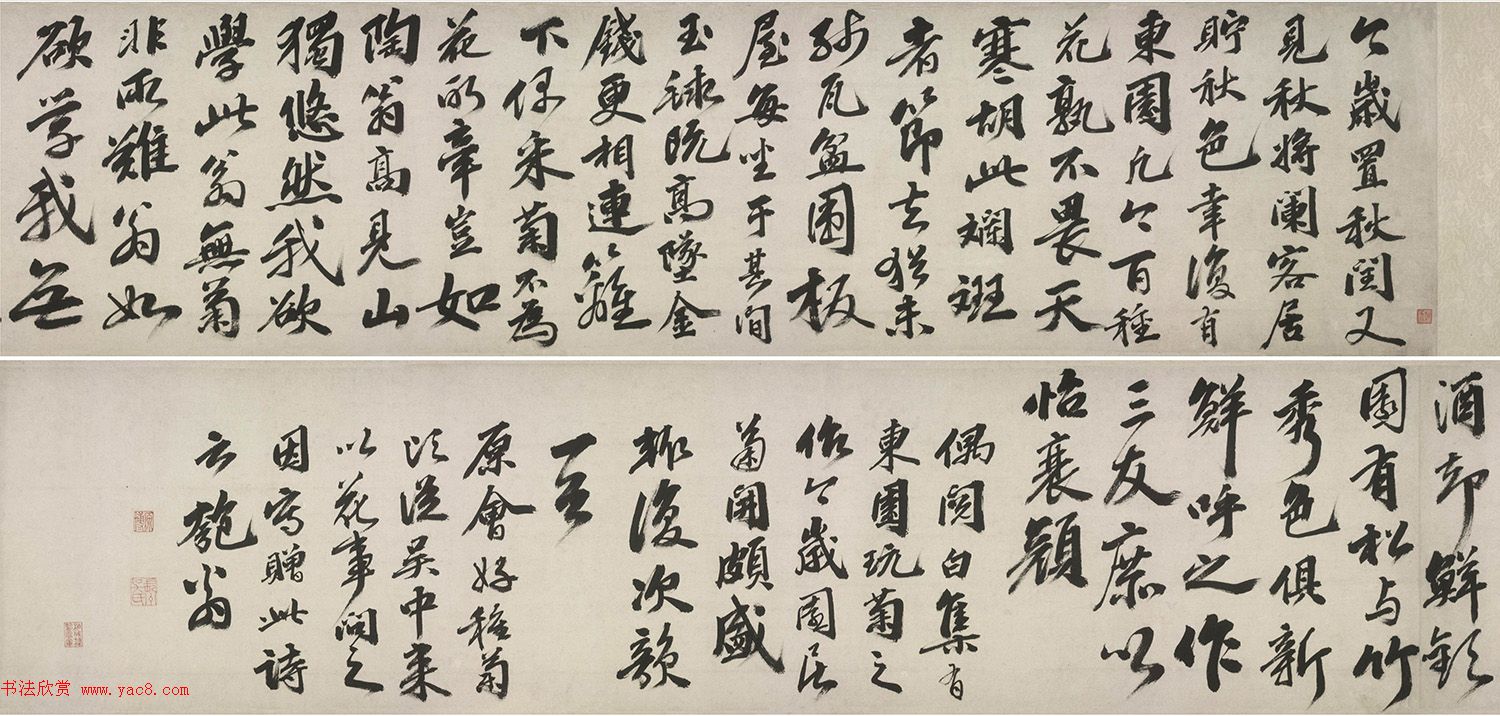 今歲置秋閏又
見秋將闌客居
貯秋色幸復有
東園凡今百種
花孰不畏天
寒胡此斕斑
者節去猶未
殘瓦盆圍板
屋每坐于其間
玉球既高墜金
錢更相連籬
下偶采菊不為
花所牽豈如
陶翁高見山
獨悠然我欲
學此翁無菊
非所難翁如
欲學我無
酒却鮮歡
園有松与竹
秀色俱新
鮮呼之作
三友庶以
怡衰顏
偶閱白集有
東園玩菊之
作今歲園居
菊開頗盛
輒復次韻
一首
原會好種菊
頃從吳中來
以花事問之
因寫贈此詩
云匏翁
书法欣赏 www.yac8.com